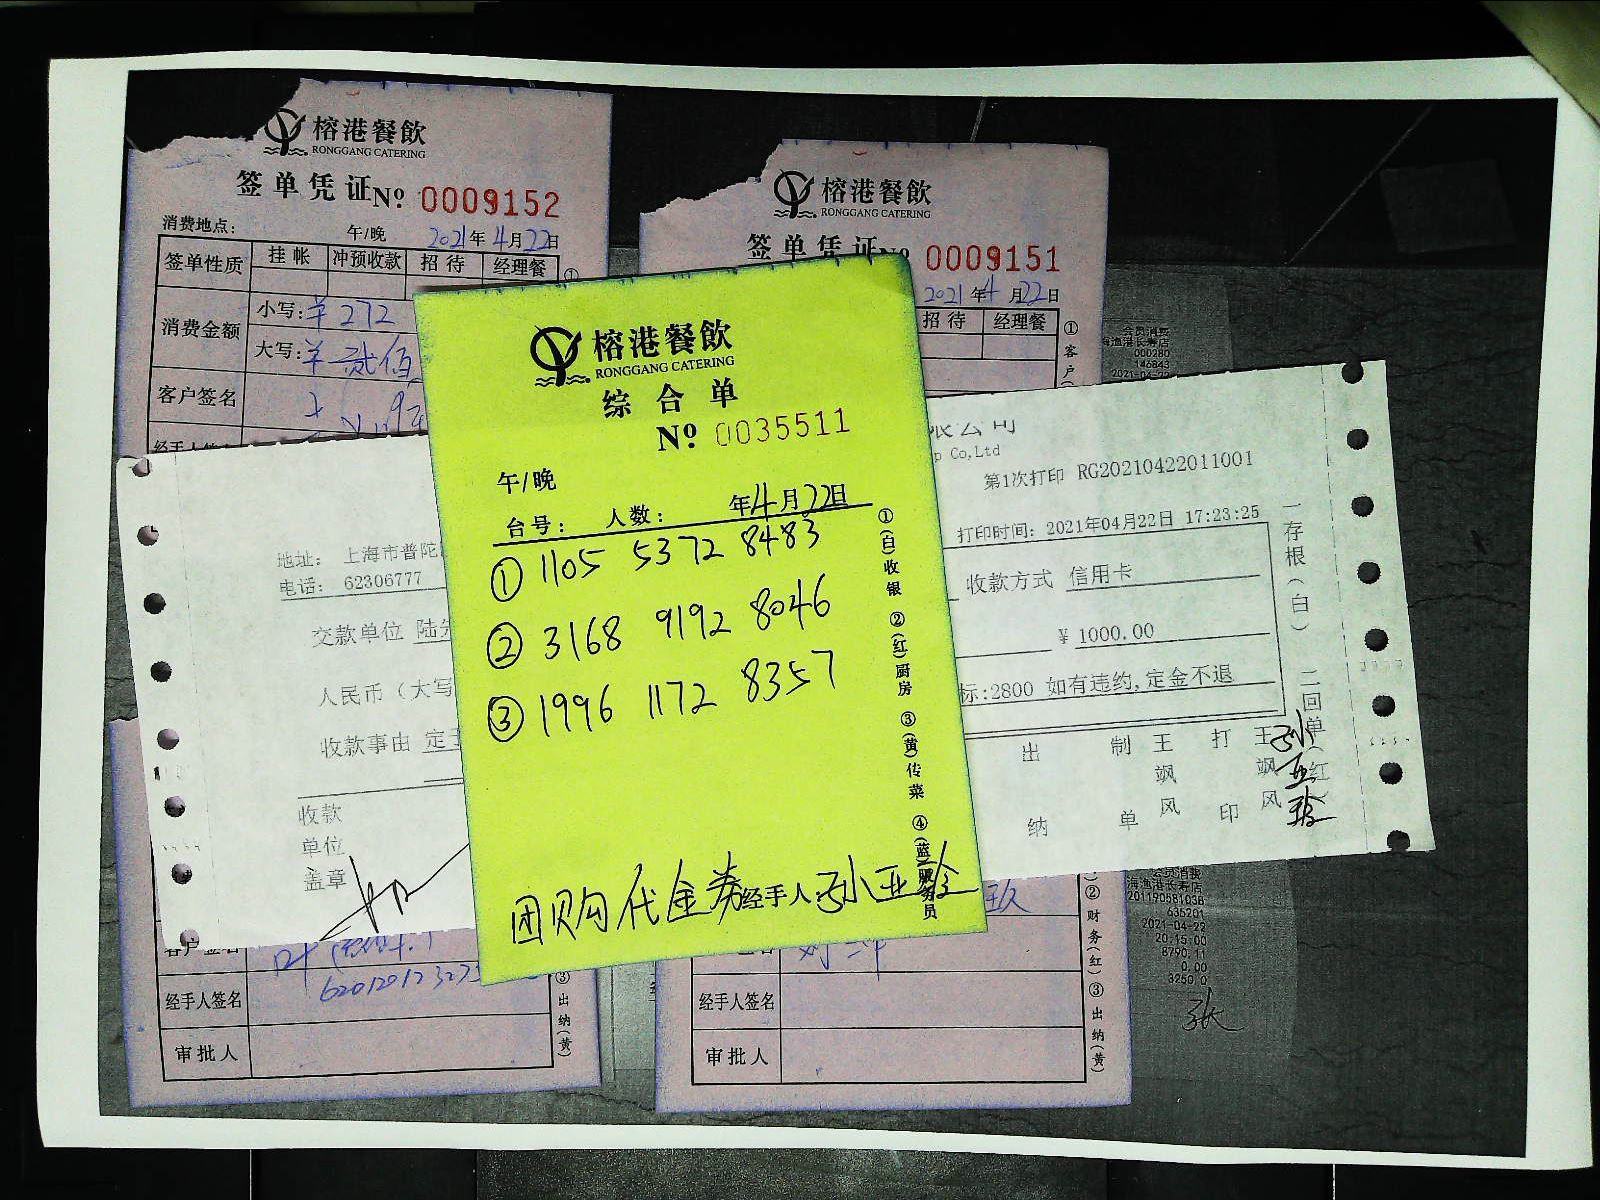 榕港餐飲
RONGGANG CATERING
签单凭证 Nº 0009152
消费地点:
午/晚 2021年4月22日
签单性质 挂帐 冲预收款 招待 经理餐
消费金额 小写:¥272
大写:¥贰佰
客户签名
榕港餐飲
RONGGANG CATERING
签单凭证 Nº 0009151
2021年4月22日
招待 经理餐
①客户
会员消费
海渔港长寿店
000280
146843
2021-04-22
榕港餐飲
RONGGANG CATERING
综合单
Nº 0035511
午/晚
台号: 人数: 年4月22日
① 1105 5372 8483
② 3168 9192 8046
③ 1996 1172 8357
团购代金券 经手人:孙亚玲
①(白)收银 ②(红)厨房 ③(黄)传菜 ④(蓝)服务员
地址: 上海市普陀
电话: 62306777
交款单位 陆
人民币(大写
收款事由 定
收款单位盖章
限公司
p Co,Ltd
第1次打印 RG20210422011001
打印时间: 2021年04月22日 17:23:25
收款方式 信用卡
¥ 1000.00
标:2800 如有违约,定金不退
出纳 制单 王飒风 打印 王飒风
孙亚玲
一存根(白) 二回单(红)
客户签名
经手人签名
审批人
③出纳(黄)
经手人签名
审批人
②财务(红) ③出纳(黄)
会员消费
海渔港长寿店
201190581038
635201
2021-04-22
20:15:00
8790.11
0.00
3250.0
张